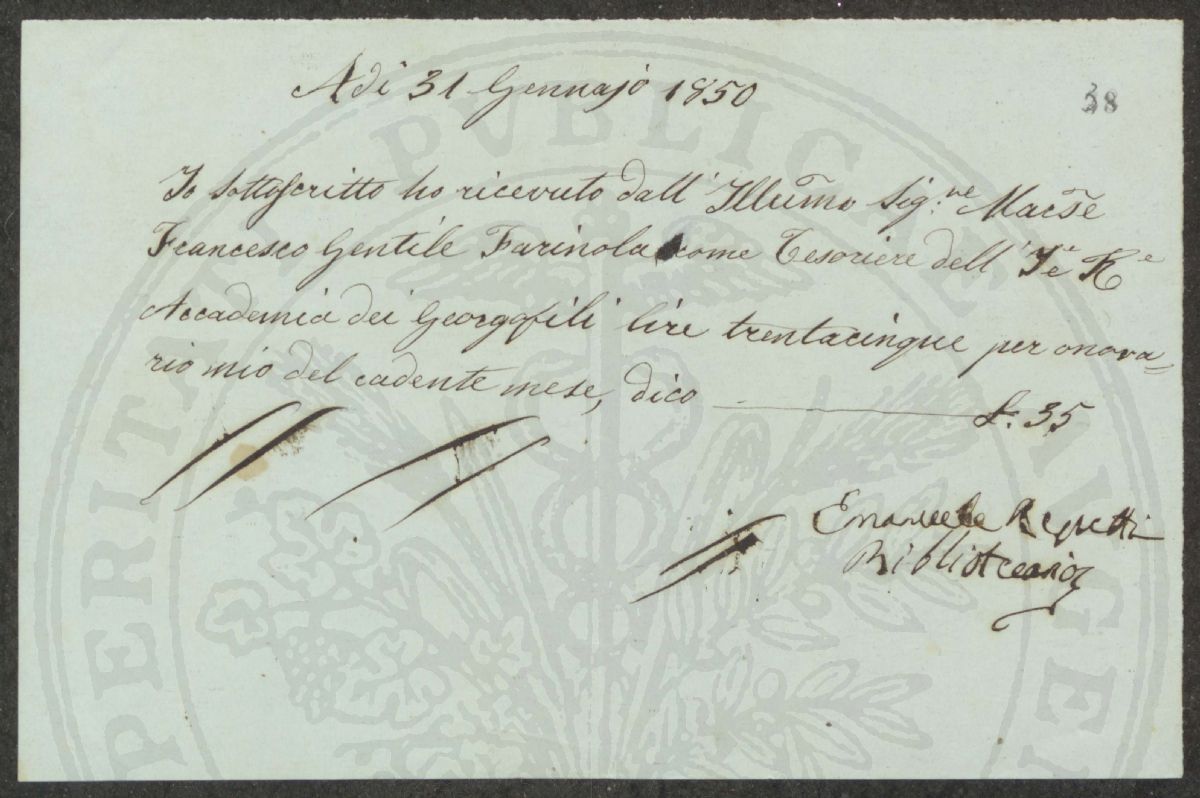 Adi 31 Gennajo 1850
28
Io sottoscritto ho ricevuto dall' Illumo Sig.re Macse
Francesco Gentile Farinola come Tesoriere dell' I.e R.e
Accademia dei Georgofili lire trentacinque per onora=
rio mio del cadente mese, dico ———— £. 35
Emanuele Repetti
Bibliotecario
PUBLICAE
PERITATI
AUGE